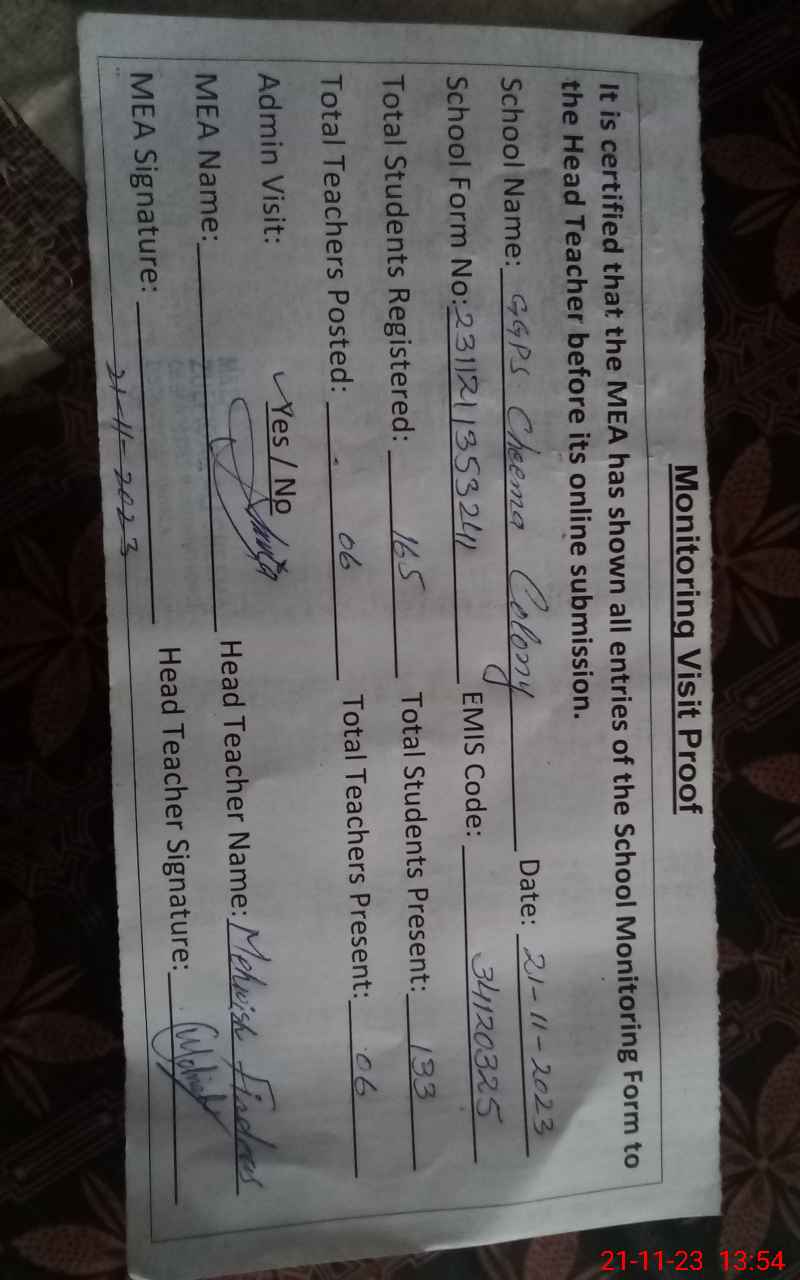 Monitoring Visit Proof
It is certified that the MEA has shown all entries of the School Monitoring Form to
the Head Teacher before its online submission.
School Name: GGPS Cheema Colony Date: 21-11-2023
School Form No: EMIS Code: 34120325
Total Students Registered: 165 Total Students Present: 133
Total Teachers Posted: 06 Total Teachers Present: 06
Admin Visit: ✓Yes / No
MEA Name: Head Teacher Name: Mehwish Firdous
MEA Signature: Head Teacher Signature:
21-11-2023
21-11-23 13:54